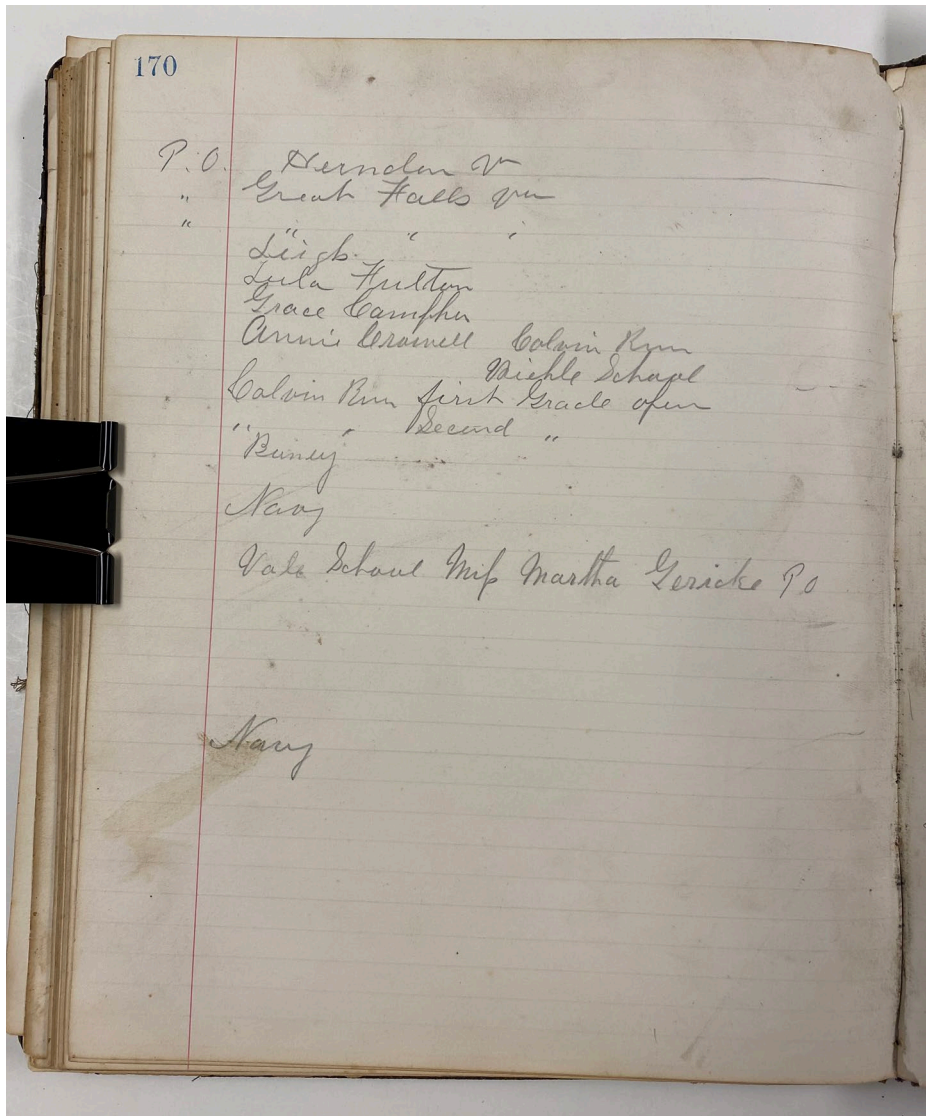 170
P. O. Herndon Va
" Great Falls Va
" " " "
Leigh
Lula Fulton
Grace
Annie Crowell Colvin Run
School
Colvin Run first Grade open
" " Second "
Navy
Vale School Miss Martha Gericke P O
Navy